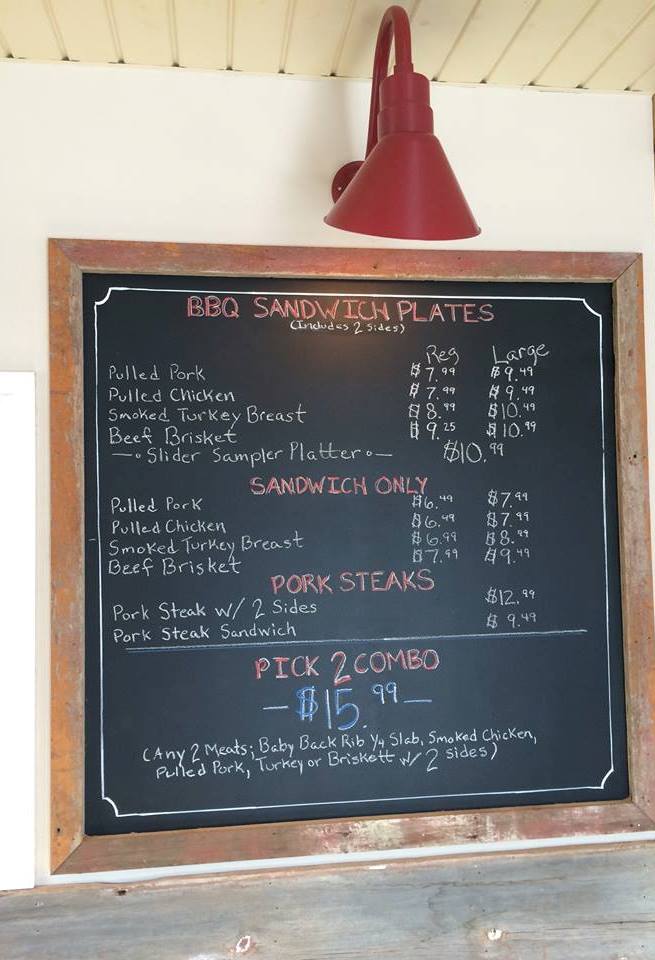 BBQ SANDWICH PLATES
(Includes 2 Sides)
Reg Large
Pulled Pork $7.99 $9.49
Pulled Chicken $7.99 $9.49
Smoked Turkey Breast $8.99 $10.49
Beef Brisket $9.25 $10.99
—∘ Slider Sampler Platter ∘— $10.99
SANDWICH ONLY
Pulled Pork $6.49 $7.99
Pulled Chicken $6.49 $7.99
Smoked Turkey Breast $6.99 $8.99
Beef Brisket $7.99 $9.49
PORK STEAKS
Pork Steak w/ 2 Sides $12.99
Pork Steak Sandwich $9.49
PICK 2 COMBO
—$15.99—
(Any 2 Meats: Baby Back Rib 1/4 Slab, Smoked Chicken,
Pulled Pork, Turkey or Briskett w/ 2 sides)